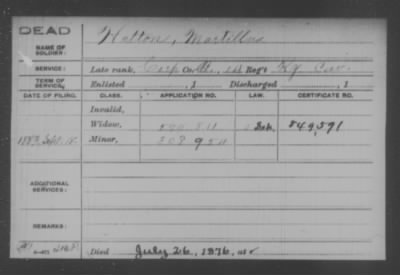 DEAD
NAME OF SOLDIER: Hatton, Martillus
SERVICE: Late rank, Corp Co. 1st Reg't Ky. Cav.
TERM OF SERVICE, Enlisted , 1 Discharged , 1
DATE OF FILING. CLASS. APPLICATION NO. LAW. CERTIFICATE NO.
Invalid,
Widow, 849,591
1883, Sept. Minor,
ADDITIONAL SERVICES:
REMARKS:
Died July 26, 1876, at